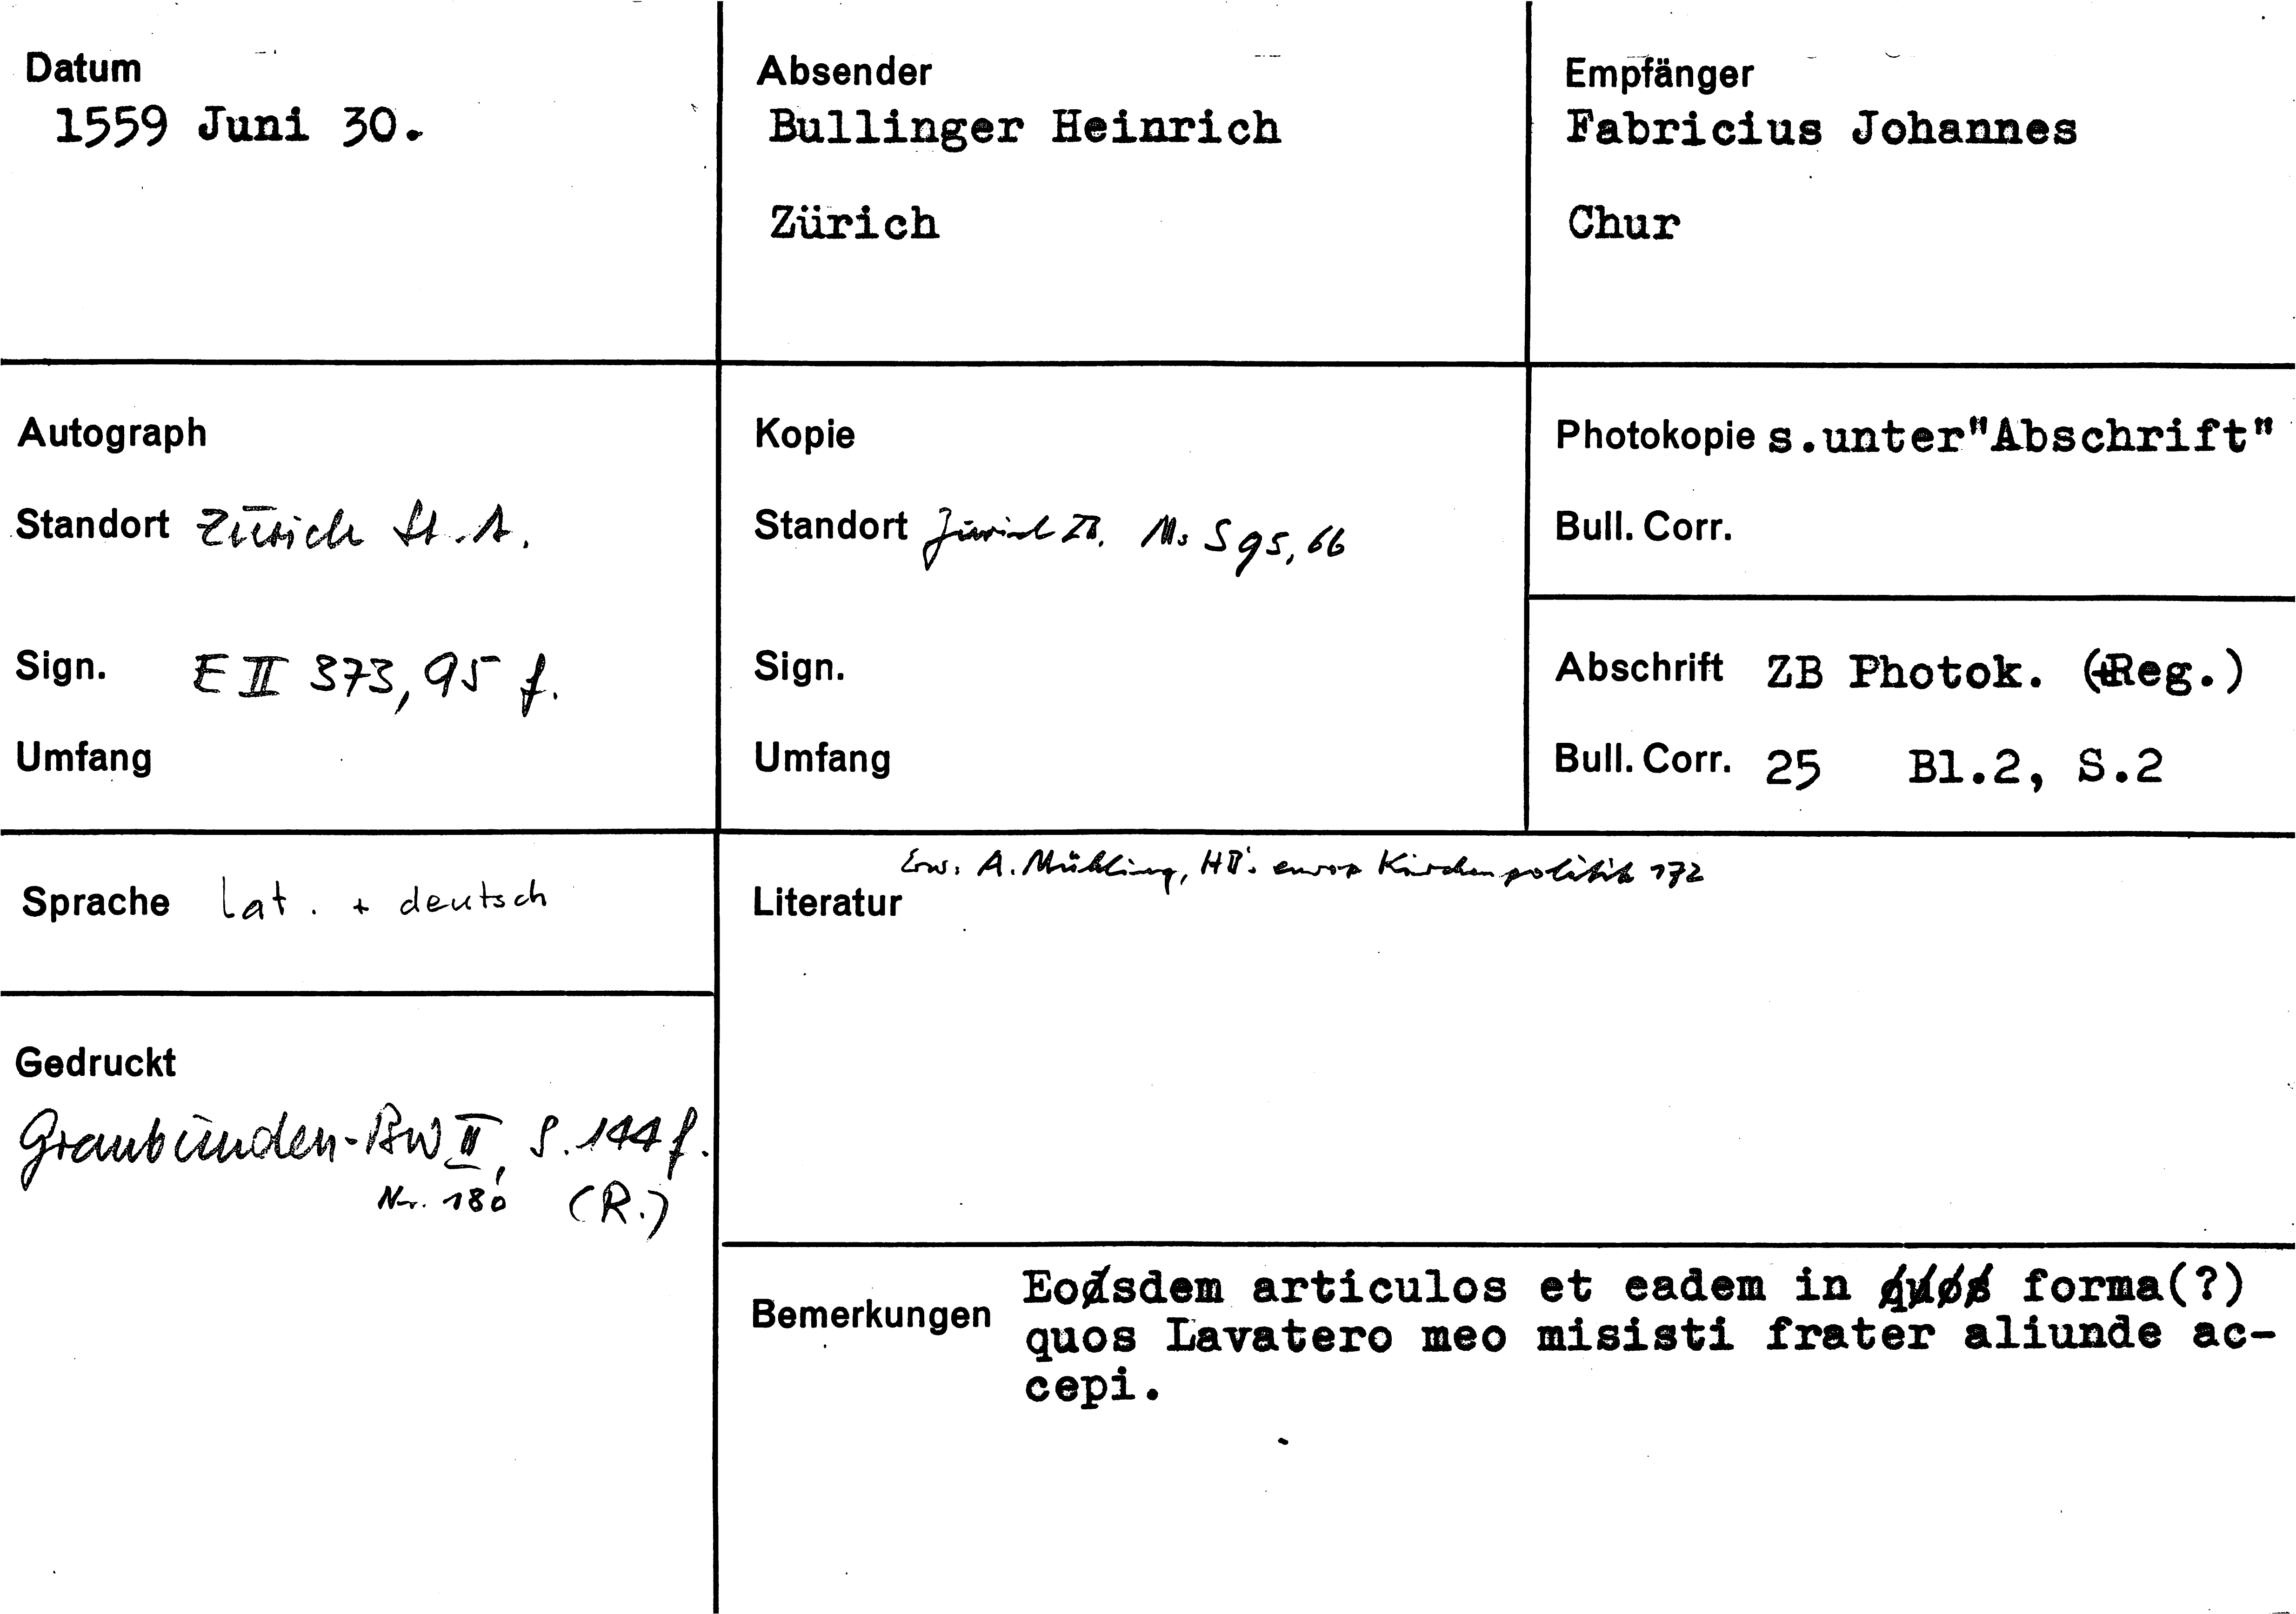 Datum
1559 Juni 30.
Absender
Bullinger Heinrich
Zürich
Empfänger
Fabricius Johannes
Chur
Autograph
Standort Zürich St.A.
Sign. E II 373, 95 f.
Umfang
Kopie
Standort Zürich ZB. Ms S 95, 66
Sign.
Umfang
Photokopie s.unter"Abschrift"
Bull. Corr.
Abschrift ZB Photok. (+Reg.)
Bull. Corr. 25 Bl.2, S.2
Sprache lat. + deutsch
Gedruckt
Graubünden-BW II, S. 144 f.
Nr. 180 (R.)
Erw: A. Mühling, HB's europ Kirchenpolitik 172
Literatur
Bemerkungen
Eosdem articulos et eadem in quos forma(?)
quos Lavatero meo misisti frater aliunde ac-
cepi.